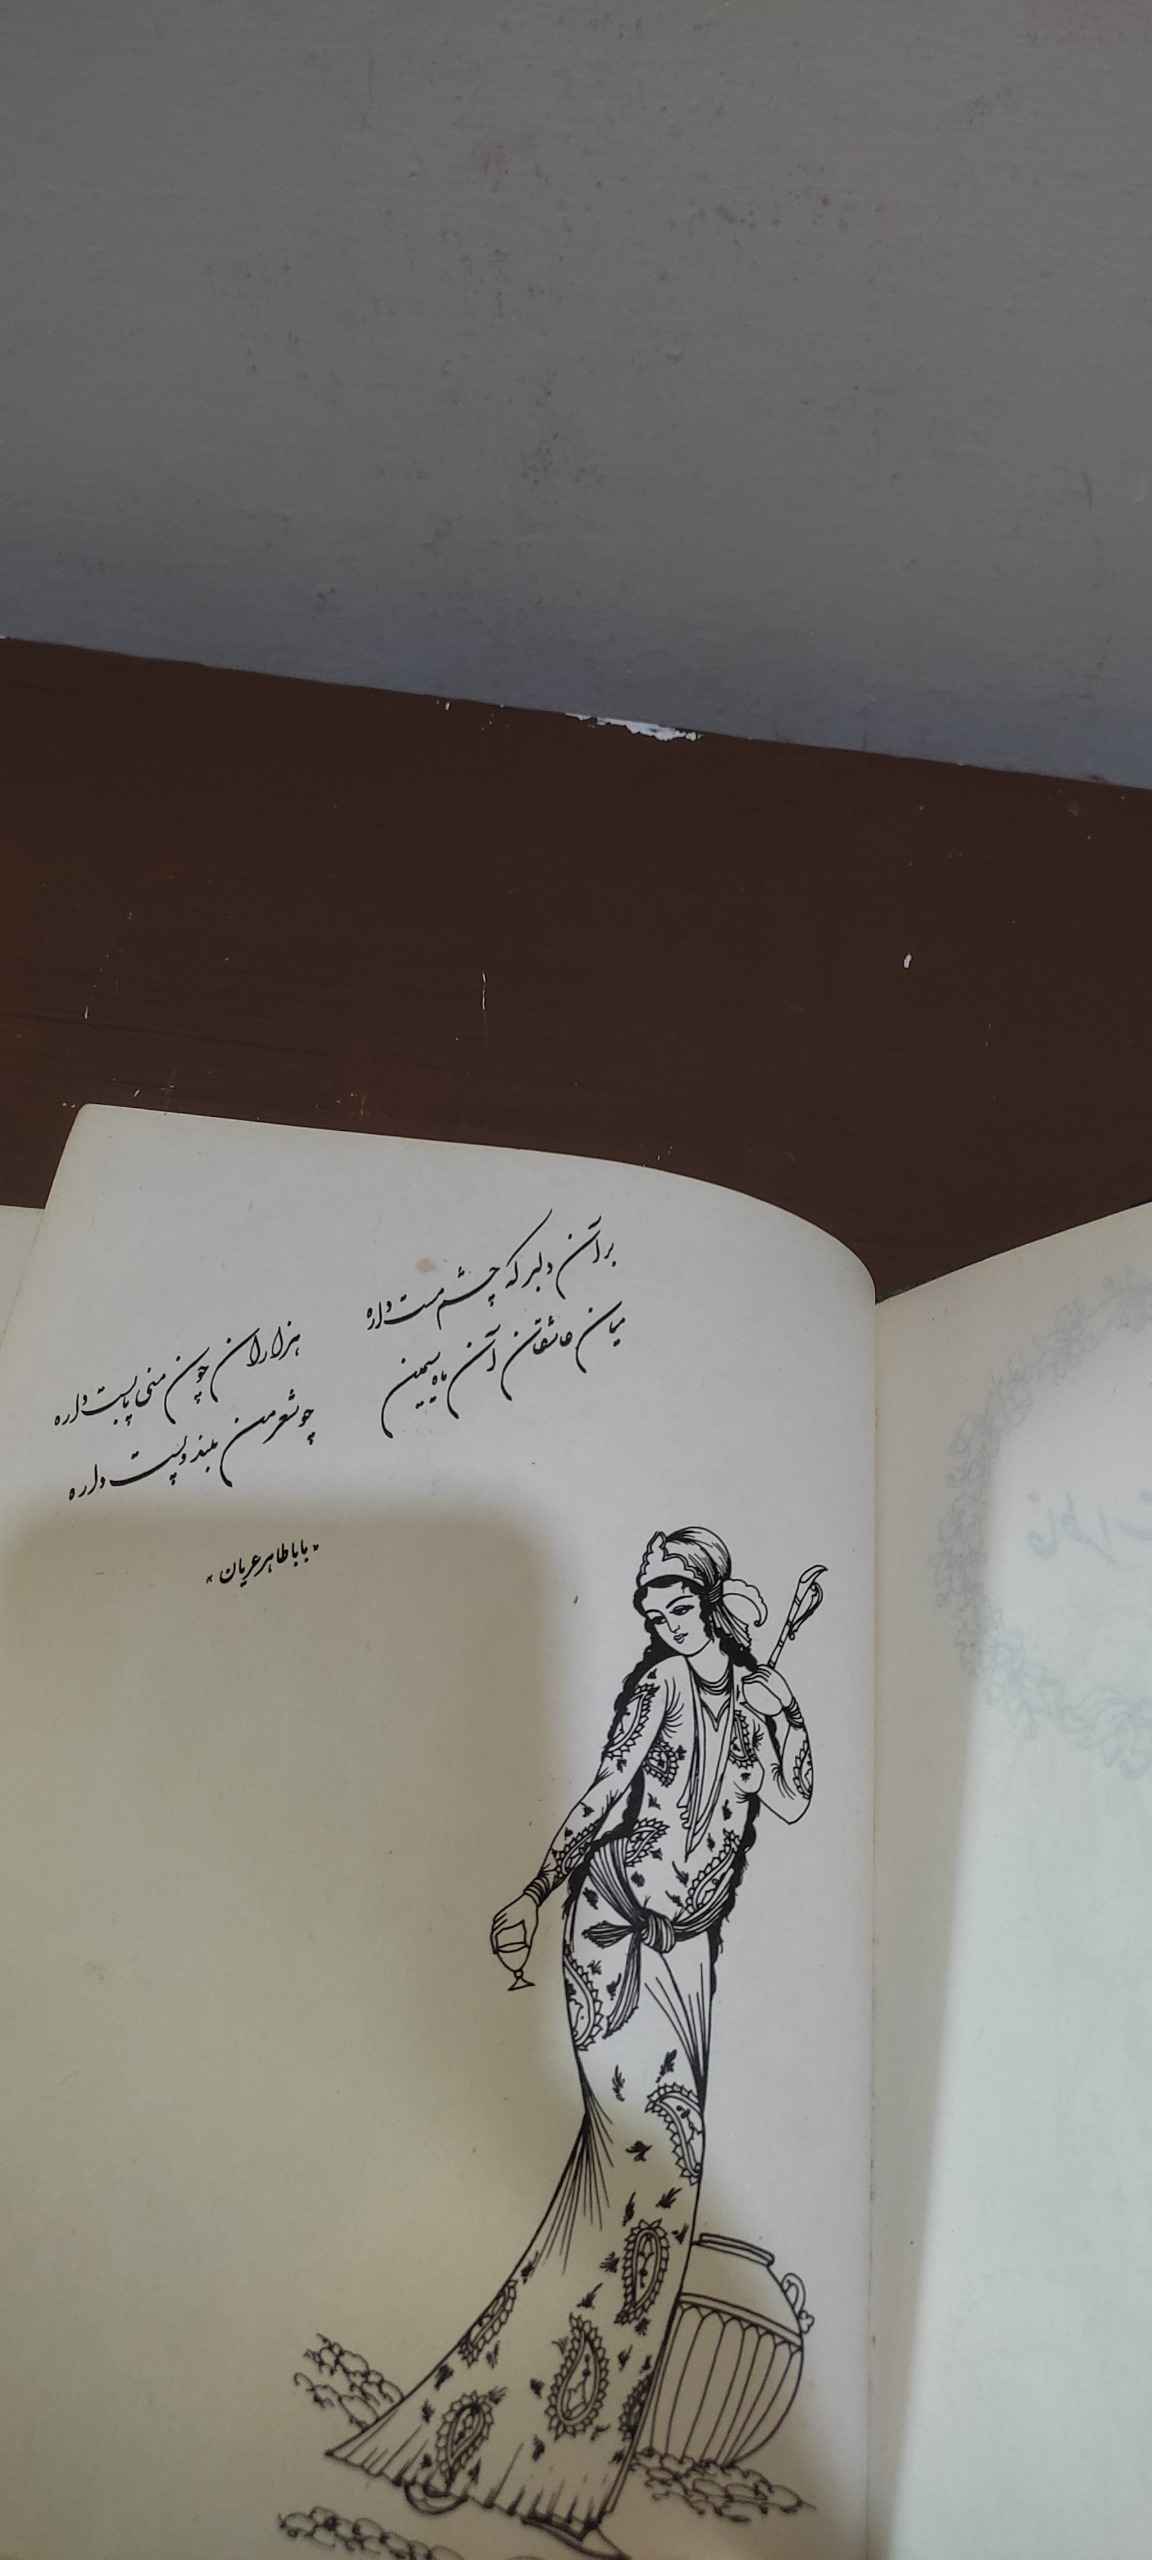 برآن دلبر که چشم مست داره
هزاران چون منی پابست داره
میان عاشقان آن ماه سیمین
چو شعر من بلند و پست داره
«باباطاهر عریان»
خاطرات